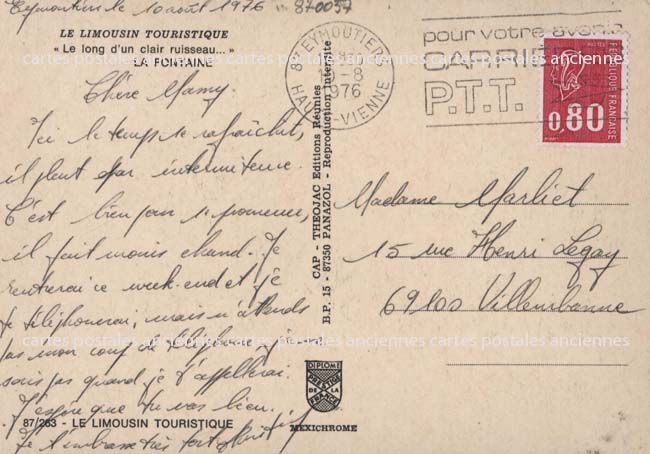 Eymoutiers le 10 août 1976
870057
LE LIMOUSIN TOURISTIQUE
« Le long d'un clair ruisseau... »
LA FONTAINE
Chère Mamy.
Ici le temps se rafraîchit,
il pleut par intermitence.
C'est bien pour se promener,
il fait moins chaud. Je
rentrerai ce week-end et je
te téléphonerai, mais n'attends
pas mon coup de téléphone, je ne
sais pas quand je t'appellerai.
J'espère que tu vas bien.
87/263 - LE LIMOUSIN TOURISTIQUE
Je t'embrasse très fort
CAP - THEOJAC Editions Réunies
B.P. 15 - 87350 PANAZOL - Reproduction Interdite
DIPLOME
PRESTIGE
DE LA
FRANCE
MEXICHROME
87 EYMOUTIERS
-8
1976
HAUTE-VIENNE
pour votre avenir
P.T.T.
REPUBLIQUE FRANÇAISE
0,80
Madame Marliet
15 rue Henri Legay
69100 Villeurbanne
cartes postales anciennes cartes postales anciennes cartes postales anciennes
cartes postales anciennes cartes postales anciennes cartes postales anciennes
cartes postales anciennes cartes postales anciennes cartes postales anciennes